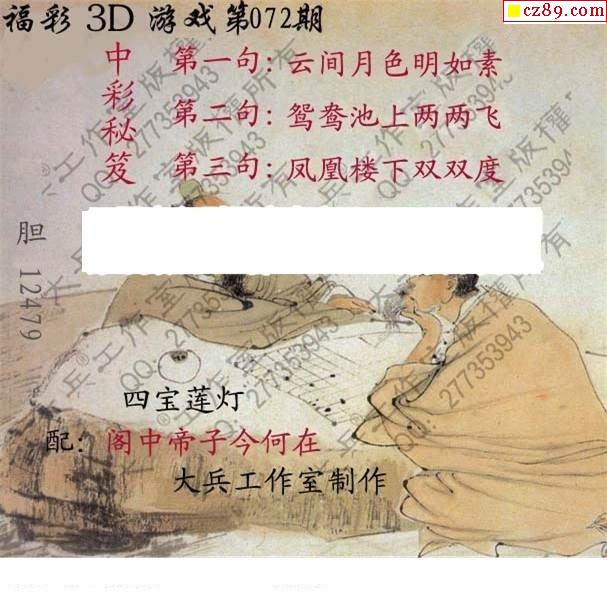 cz89.com
福彩 3D 游戏第072期
中彩秘笈
第一句:云间月色明如素
第二句:鸳鸯池上两两飞
第三句:凤凰楼下双双度
胆 12479
四宝莲灯
配:阁中帝子今何在
大兵工作室制作
大兵®工作室版權所有
QQ:277353943